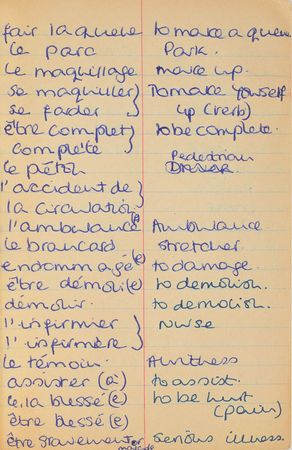 fair la queue to make a queue
le parc Park.
le maquillage make up.
se maquiller } To make yourself
se farder } up (verb)
être complet } to be complete.
complète }
le piéton Pedestrian
l'accident de }
la circulation }
l'ambulance (A) Ambulance
le brancard stretcher
endommagé(e) to damage.
être démoli(e) to demolish.
démolir. to demolish.
l'infirmier } nurse
l'infirmère }
le témoin. A witness
assister (à) to assist.
le, la blessé(e) to be hurt
être blessé(e) (pain)
être gravement malade serious illness.